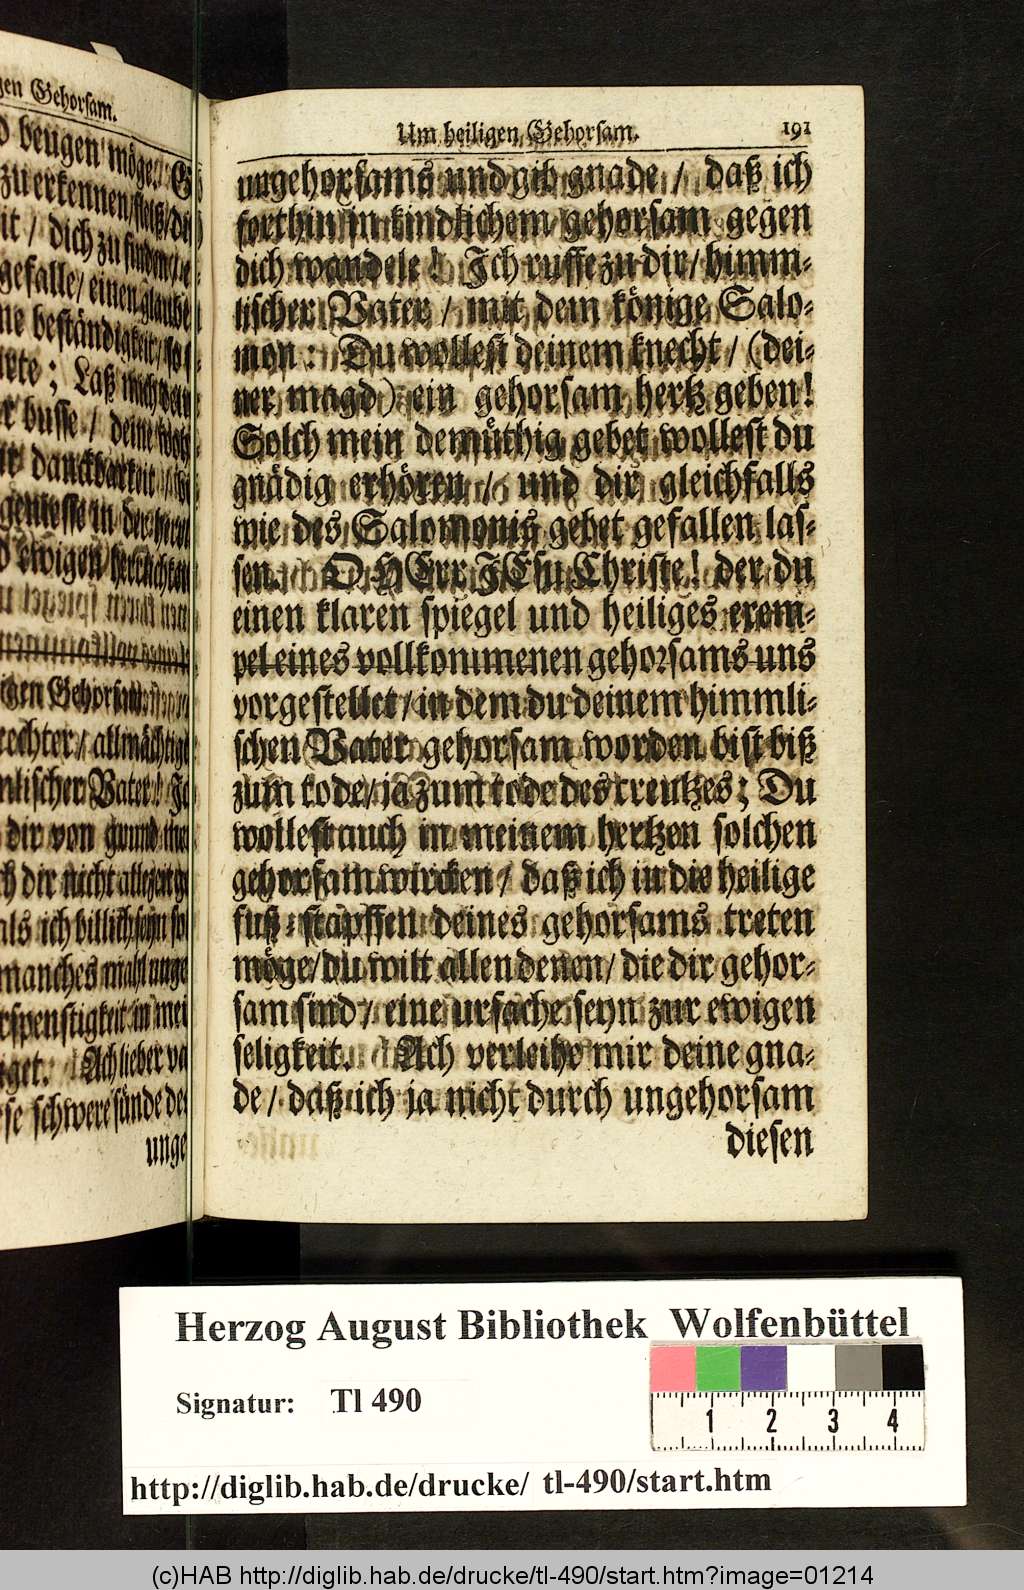 gen Gehorsam.
d beugen möge.
zu erkennen/
it / dich zu finden/
gefalle/ einen glaube
ne beständigkeit/ so
Laß mich dein
r busse / deine
danckbarkeit /
geniesse in der
d ewigen herrlichkeit
igen Gehorsam.
rechter/ allmächtige
mlischer Vater! Je
dir von grund mei
ch dir nicht allezeit ge
als ich billich seyn sol
manches mahl unge
rspenstigkeit in mei
get. Ach lieber va
se schwere sünde des
unge
Um heiligen Gehorsam. 191
ungehorsams und gib gnade / daß ich
forthin in kindlichem gehorsam gegen
dich wandele! Ich ruffe zu dir/ himm-
lischer Vater / mit dem könige Salo-
mon: Du wollest deinem knecht / (dei-
ner magd) ein gehorsam hertz geben!
Solch mein demüthig gebet wollest du
gnädig erhören / und dir gleichfalls
wie des Salomonis gebet gefallen las-
sen. O HErr JEsu Christe! der du
einen klaren spiegel und heiliges exem-
pel eines vollkommenen gehorsams uns
vorgestellet / in dem du deinem himmli-
schen Vater gehorsam worden bist biß
zum tode/ ja zum tode des creutzes; Du
wollest auch in meinem hertzen solchen
gehorsam wircken / daß ich in die heilige
fuß-stapffen deines gehorsams treten
möge/ du wilt allen denen/ die dir gehor-
sam sind / eine ursache seyn zur ewigen
seligkeit. Ach verleihe mir deine gna-
de / daß ich ja nicht durch ungehorsam
diesen
Herzog August Bibliothek Wolfenbüttel
Signatur: Tl 490
1 2 3 4
http://diglib.hab.de/drucke/ tl-490/start.htm
(c)HAB http://diglib.hab.de/drucke/tl-490/start.htm?image=01214